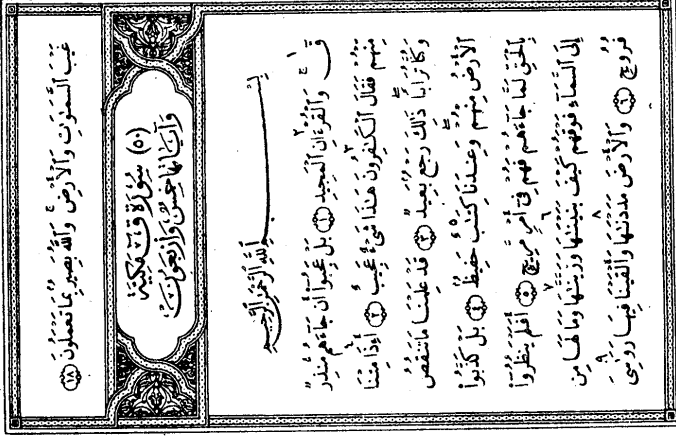 غَيْبَ السَّمَٰوَٰتِ وَالْأَرْضِ ۚ وَاللَّهُ بَصِيرٌۢ بِمَا تَعْمَلُونَ ﴿١٨﴾
(٥٠) سُورَة ق مَكِّيَّة
وَآيَاتُهَا خَمْسٌ وَأَرْبَعُونَ
بِسْمِ اللَّهِ الرَّحْمَٰنِ الرَّحِيمِ
قٓ ۚ وَالْقُرْءَانِ الْمَجِيدِ ﴿١﴾ بَلْ عَجِبُوٓا۟ أَن جَآءَهُم مُّنذِرٌ
مِّنْهُمْ فَقَالَ الْكَٰفِرُونَ هَٰذَا شَىْءٌ عَجِيبٌ ﴿٢﴾ أَءِذَا مِتْنَا
وَكُنَّا تُرَابًا ۖ ذَٰلِكَ رَجْعٌۢ بَعِيدٌ ﴿٣﴾ قَدْ عَلِمْنَا مَا تَنقُصُ
الْأَرْضُ مِنْهُمْ ۖ وَعِندَنَا كِتَٰبٌ حَفِيظٌۢ ﴿٤﴾ بَلْ كَذَّبُوا۟
بِالْحَقِّ لَمَّا جَآءَهُمْ فَهُمْ فِىٓ أَمْرٍ مَّرِيجٍ ﴿٥﴾ أَفَلَمْ يَنظُرُوٓا۟
إِلَى السَّمَآءِ فَوْقَهُمْ كَيْفَ بَنَيْنَٰهَا وَزَيَّنَّٰهَا وَمَا لَهَا مِن
فُرُوجٍ ﴿٦﴾ وَالْأَرْضَ مَدَدْنَٰهَا وَأَلْقَيْنَا فِيهَا رَوَٰسِىَ